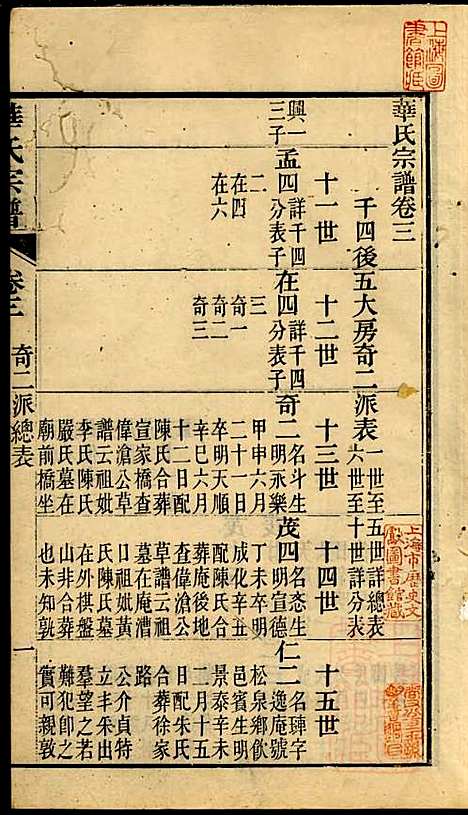 華氏宗譜卷三
千四後五大房奇二派表 一世至五世詳總表
六世至十世詳分表
十一世 十二世 十三世 十四世 十五世
興一
三子
孟四 詳千四
分表子
二
在四
在六
在四 詳千四
分表子
三
奇一
奇二
奇三
奇二 名斗生
明永樂
甲申六月
二十一日
卒明天順
辛巳六月
十二日配
陳氏合葬
宣家橋查
偉滄公草
譜云祖妣
李氏陳氏
嚴氏墓在
廟前橋坐
茂四 名忞生
明宣德
丁未卒明
成化辛丑
配陳氏合
葬庵後
查偉滄公
草譜云祖
墓在庵漕
口祖妣黃
氏陳氏墓
在外棋盤
山非合葬
也未知孰
仁二 名琫字
逸庵號
松泉鄉飲
邑賓生明
景泰辛未
二月十五
日配朱氏
合葬徐家
路
公介貞特
立丰采出
羣望之若
難犯卽之
實可親敦
華氏宗譜
卷三
奇二派總表
一
上海圖書館藏
上海市歷史文獻圖書館藏